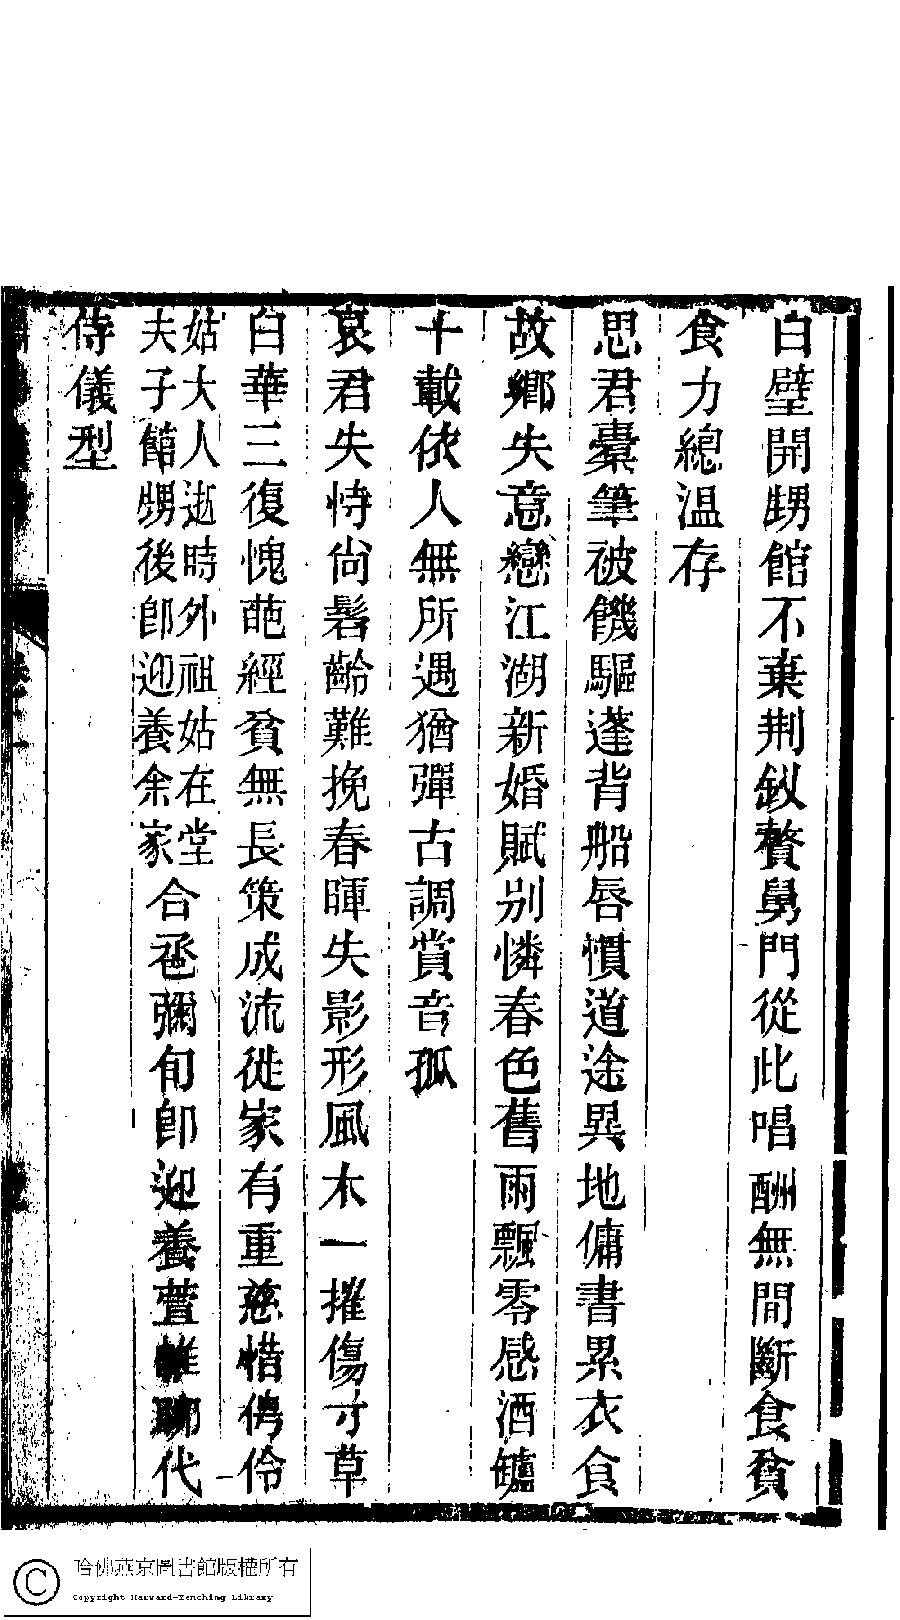 白壁開甥館不棄荆釵贅舅門從此唱酬無間斷食貧
食力總溫存
思君橐筆被饑驅蓬背船唇慣道途異地傭書累衣食
故鄉失意戀江湖新婚賦别憐春色舊雨飄零感酒罏
十載依人無所遇猶彈古調賞音孤
哀君失恃尙髫齡難挽春暉失影形風木一摧傷寸草
白華三復愧葩經貧無長策成流徙家有重慈惜俜伶
姑大人逝時外祖姑在堂
夫子館甥後卽迎養余家
合巹彌旬卽迎養萱帷聊代
侍儀型
哈佛燕京圖書館版權所有
Copyright Harvard-Yenching Library